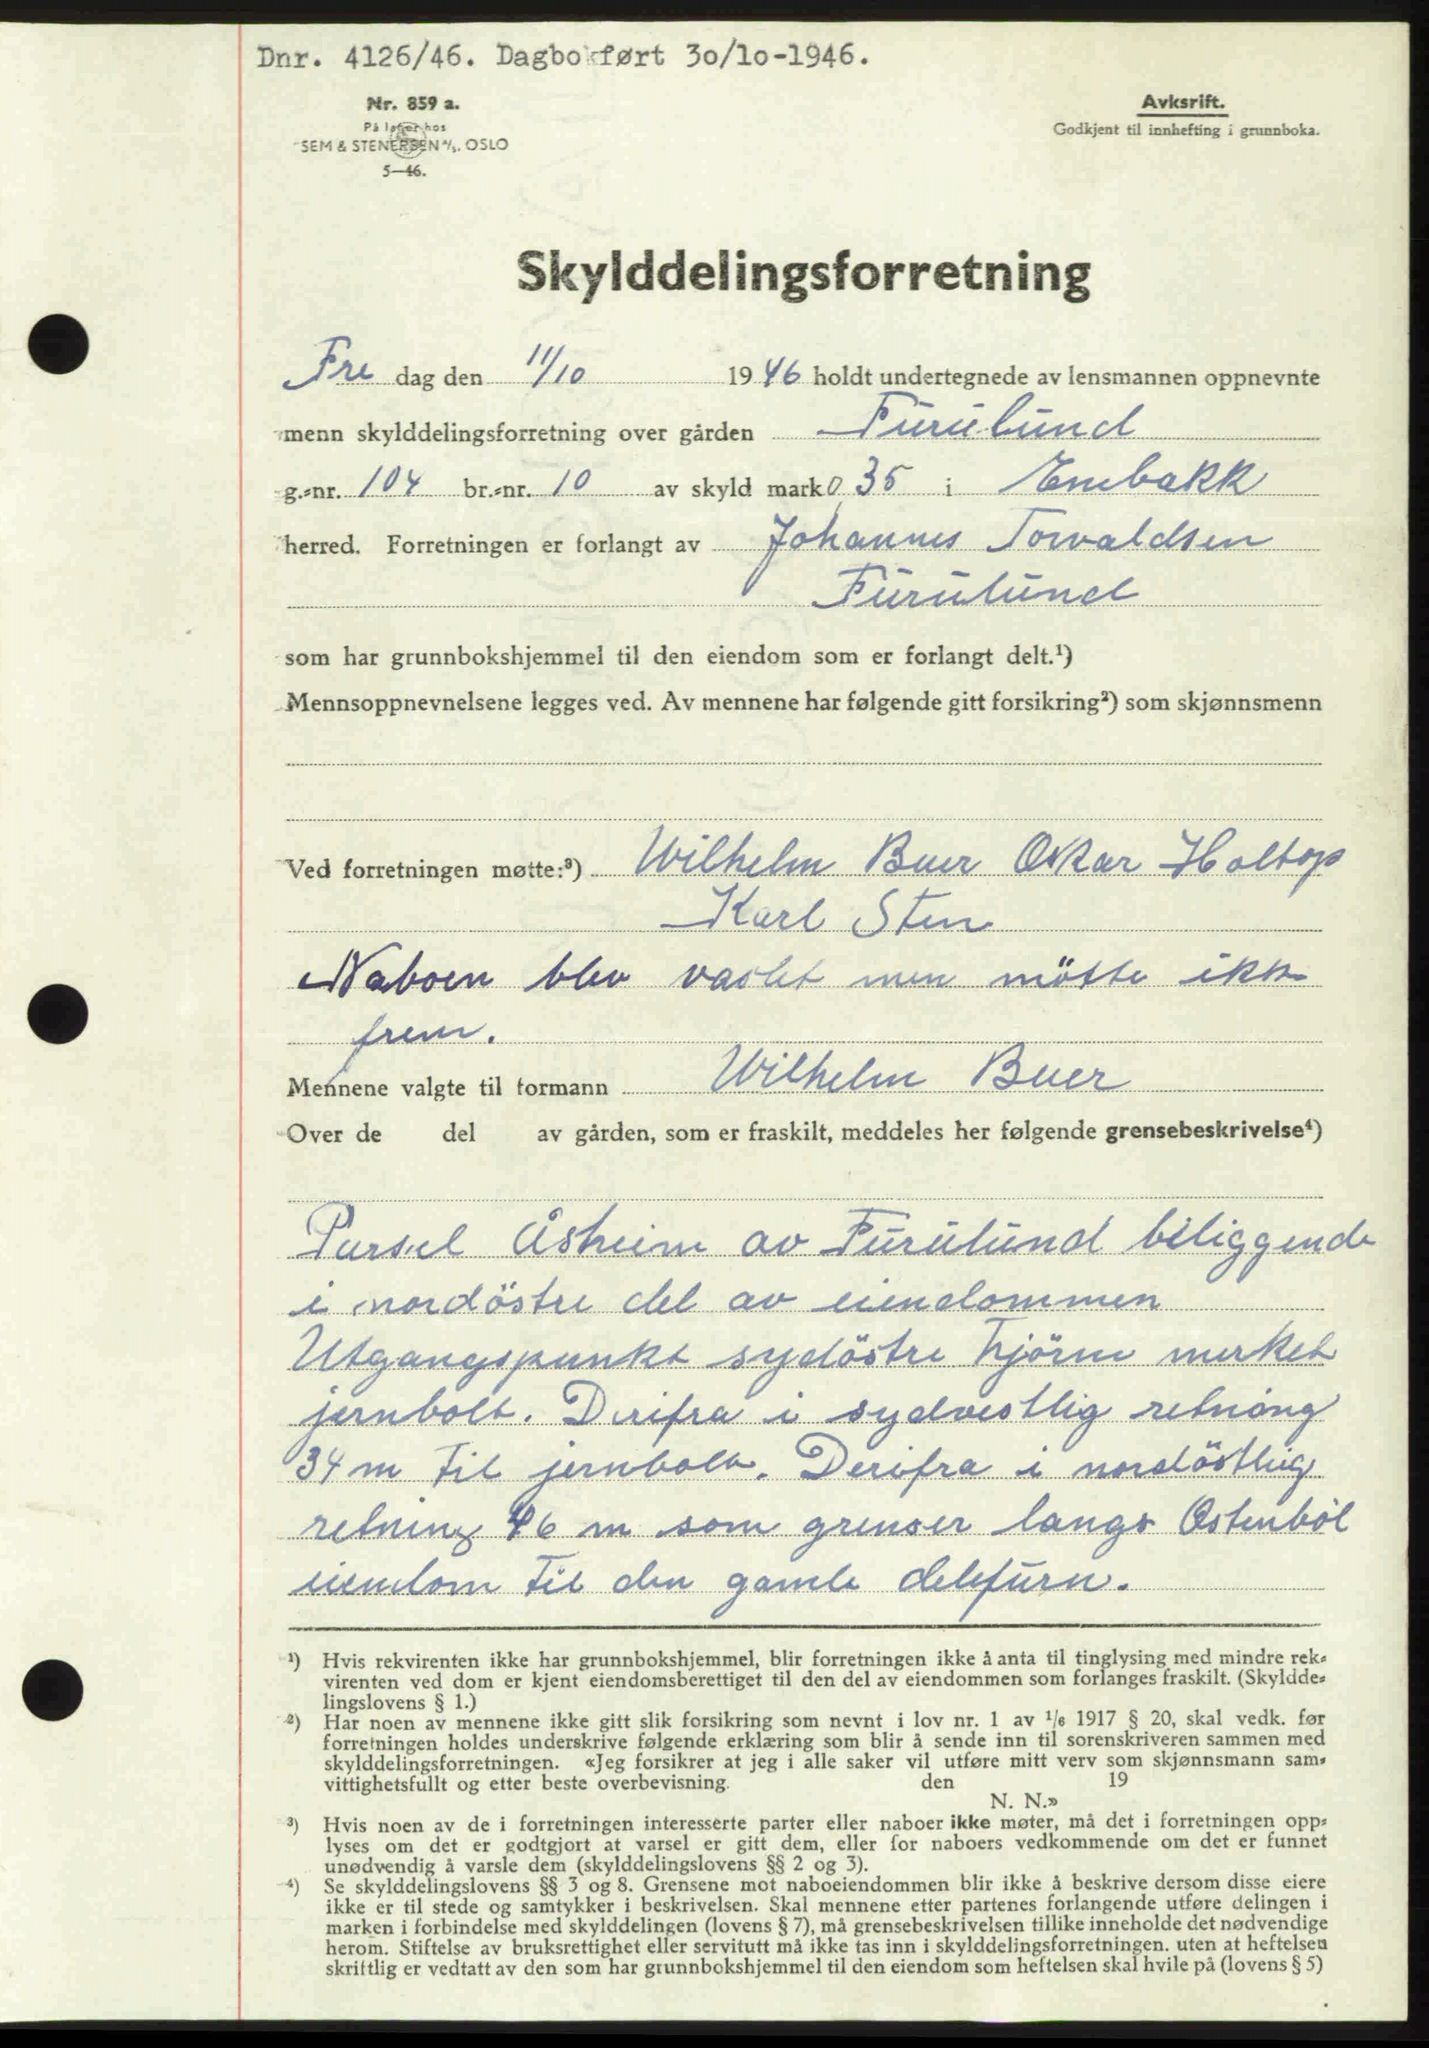 Dnr. 4126/46. Dagbokført 30/10-1946.
Nr. 859 a.
På lager hos
SEM & STENERSEN A/S. OSLO
5—46.
Avksrift.
Godkjent til innhefting i grunnboka.
Skylddelingsforretning
Fre dag den 11/10 1946 holdt undertegnede av lensmannen oppnevnte
menn skylddelingsforretning over gården Furulund
g.-nr. 104 br.-nr. 10 av skyld mark 0,35 i Enebakk
herred. Forretningen er forlangt av Johannes Torvaldsen
Furulund
som har grunnbokshjemmel til den eiendom som er forlangt delt.¹)
Mennsoppnevnelsene legges ved. Av mennene har følgende gitt forsikring²) som skjønnsmenn
Ved forretningen møtte:³) Wilhelm Buer Oskar Holtop
Karl Sten
Naboen blev vaslet men møtte ikke
frem.
Mennene valgte til formann Wilhelm Buer
Over de del av gården, som er fraskilt, meddeles her følgende grensebeskrivelse⁴)
Parsel Åsheim av Furulund biliggende
i nordöstre del av eiendommen
Utgangspunkt sydöstre hjörne merket
jernbolt. Derifra i sydvestlig retning
34 m til jernbolt. Derifra i nordöstlig
retning 46 m som grenser langs Ostenböl
eiendom til den gamle delefurn.
¹) Hvis rekvirenten ikke har grunnbokshjemmel, blir forretningen ikke å anta til tinglysing med mindre rek-
virenten ved dom er kjent eiendomsberettiget til den del av eiendommen som forlanges fraskilt. (Skyldde-
lingslovens § 1.)
²) Har noen av mennene ikke gitt slik forsikring som nevnt i lov nr. 1 av 1/6 1917 § 20, skal vedk. før
forretningen holdes underskrive følgende erklæring som blir å sende inn til sorenskriveren sammen med
skylddelingsforretningen. «Jeg forsikrer at jeg i alle saker vil utføre mitt verv som skjønnsmann sam-
vittighetsfullt og etter beste overbevisning. den 19
N. N.»
³) Hvis noen av de i forretningen interesserte parter eller naboer ikke møter, må det i forretningen opp-
lyses om det er godtgjort at varsel er gitt dem, eller for naboers vedkommende om det er funnet
unødvendig å varsle dem (skylddelingslovens §§ 2 og 3).
⁴) Se skylddelingslovens §§ 3 og 8. Grensene mot naboeiendommen blir ikke å beskrive dersom disse eiere
ikke er til stede og samtykker i beskrivelsen. Skal mennene etter partenes forlangende utføre delingen i
marken i forbindelse med skylddelingen (lovens § 7), må grensebeskrivelsen tillike inneholde det nødvendige
herom. Stiftelse av bruksrettighet eller servitutt må ikke tas inn i skylddelingsforretningen. uten at heftelsen
skriftlig er vedtatt av den som har grunnbokshjemmel til den eiendom som heftelsen skal hvile på (lovens § 5)